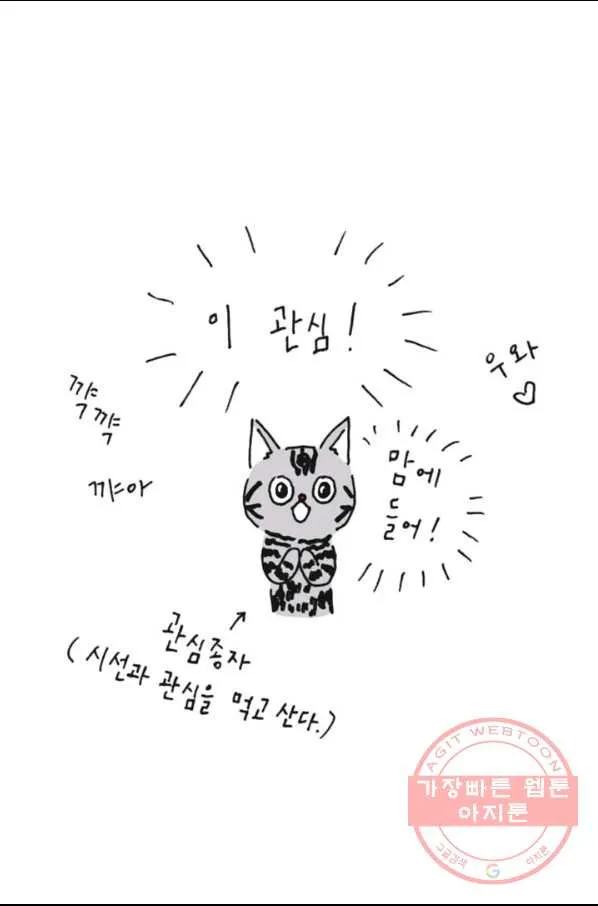 이 관심!
우와
꺅
꺅
꺄아
맘에
들어!
관심종자
(시선과 관심을 먹고 산다.)
AGIT WEBTOON
가장빠른 웹툰
아지툰
구글검색
아지툰